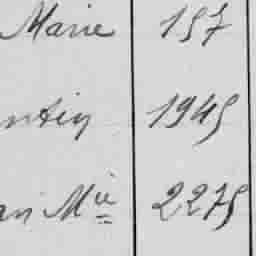 Marie 157
ntin 1945
an Mie 2275